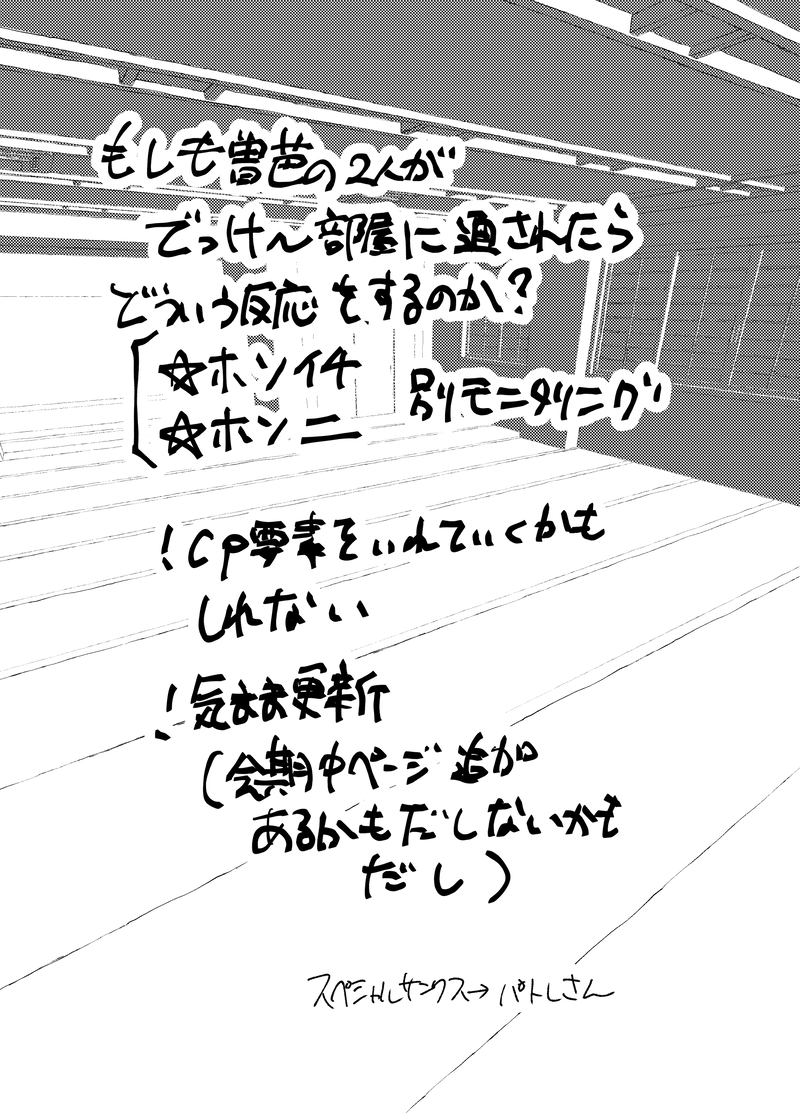 もしも曽芭の2人が
でっけ〜部屋に通されたら
どういう反応をするのか?
☆ホンイチ
☆ホンニ
別モニタリング
!cp要素をいれていくかも
しれない
!気まま更新
(会期中ページ追加
あるかもだしないかも
だし)
スペシャルサンクス→パトしさん